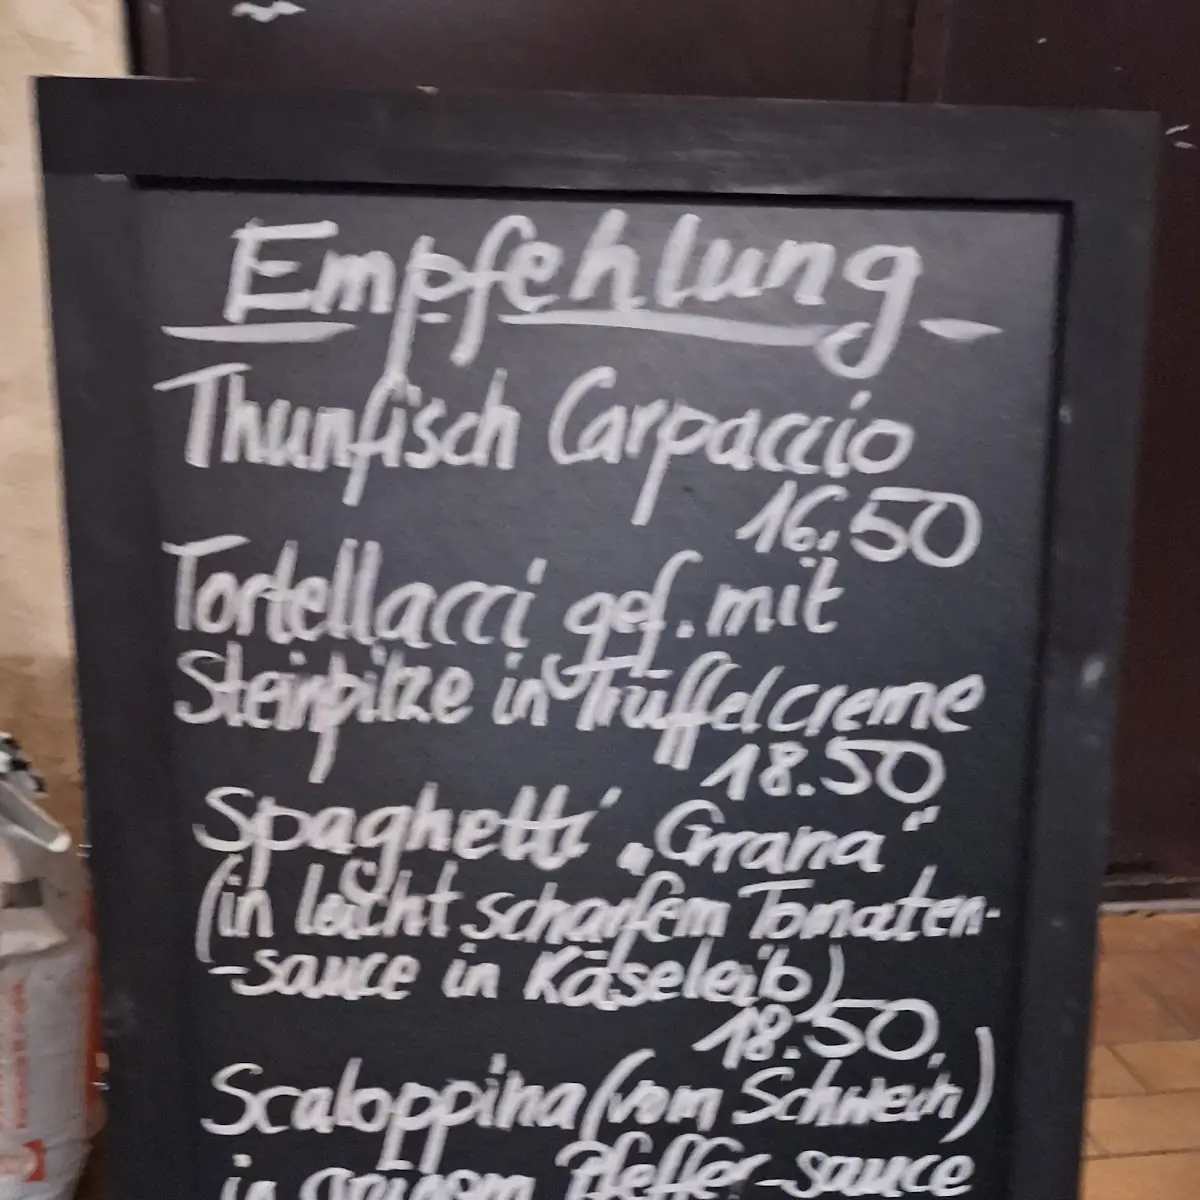 Empfehlung
Thunfisch Carpaccio
16.50
Tortellacci gef. mit
Steinpilze in Trüffelcreme
18.50
Spaghetti „Grana"
(in leicht scharfem Tomaten-
-sauce in Käseleib)
18.50
Scaloppina (vom Schwein)
in grünem Pfeffer-sauce